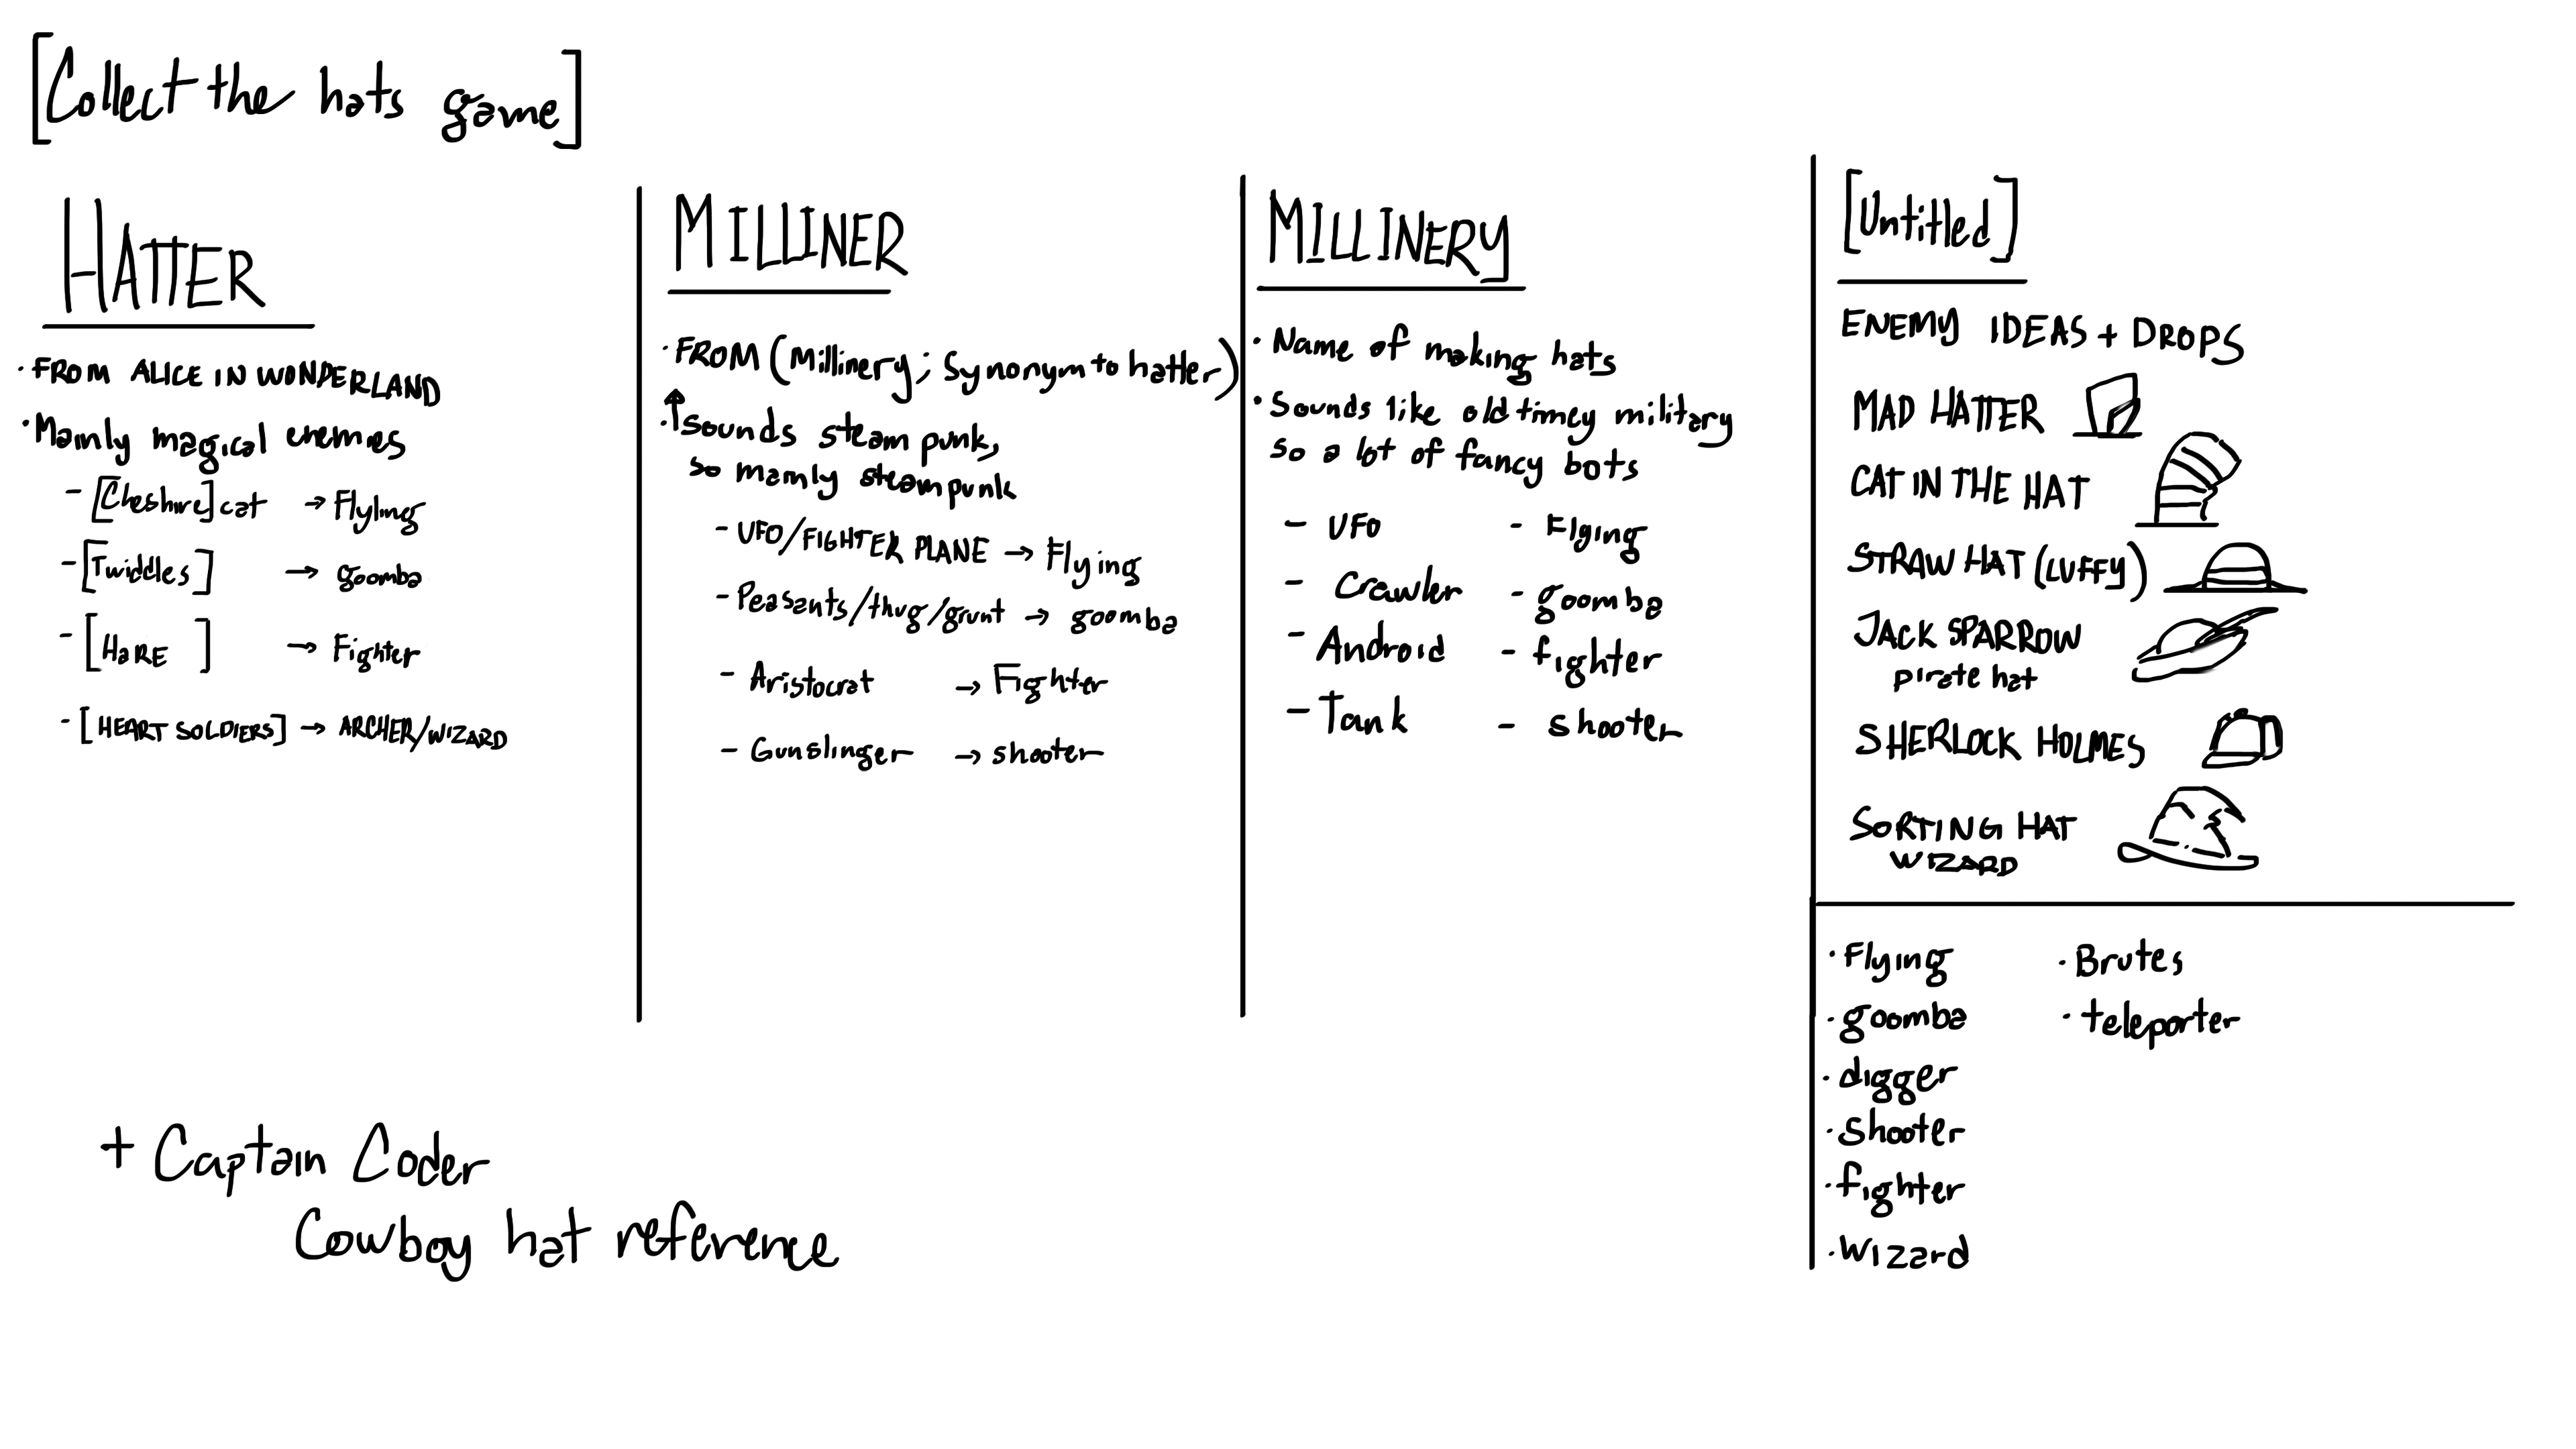 [Collect the hats game]
HATTER
· FROM ALICE IN WONDERLAND
· Mainly magical enemies
- [Cheshire] cat → Flyling
- [Twiddles] → goomba
- [HARE ] → Fighter
- [HEART SOLDIERS] → ARCHER/WIZARD
MILLINER
· FROM (Millinery; Synonym to hatter)
· ↑ Sounds steam punk,
so mainly steampunk
- UFO/FIGHTER PLANE → Flying
- Peasants/thug/grunt → goomba
- Aristocrat → Fighter
- Gunslinger → shooter
MILLINERY
· Name of making hats
· Sounds like old timey military
so a lot of fancy bots
- UFO - Flying
- Crawler - goomba
- Android - fighter
- Tank - shooter
[Untitled]
ENEMY IDEAS + DROPS
MAD HATTER
CAT IN THE HAT
STRAW HAT (LUFFY)
JACK SPARROW
pirate hat
SHERLOCK HOLMES
SORTING HAT
WIZARD
· Flying · Brutes
· goomba · teleporter
· digger
· shooter
· fighter
· wizard
+ Captain Coder
Cowboy hat reference